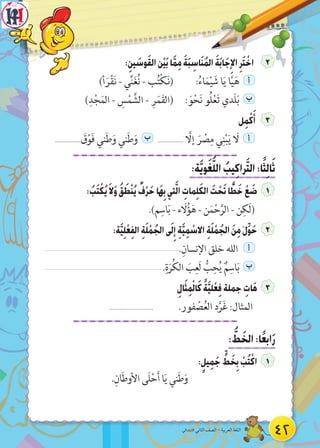 ٢ اِخْتَرِ الإِجَابَةَ الْمُنَاسِبَةَ مِمَّا بَيْنَ القَوْسَيْنِ:
أ هَيَّا يَا شَيْمَاءُ: (نَكْتُبُ - نُغَنِّي - نَقْرَأ)
ب بَلَدِي تَعْلُو نَحْوَ: (القَمَرِ - الشَّمْسِ - المَجْدِ)
٣ أَكْمِلْ
أ لَا يَبْنِي مِصْرَ إِلَّا ............ ب وَطَنِي وَطَنِي فَوْقَ ............
ثَالثًا: التَّراكيبُ اللُّغَوِيَّة:
١ ضَعْ خَطًّا تَحْتَ الكَلِماتِ الَّتي بِهَا حَرْفٌ يُنْطَقُ وَلَا يُكْتَبُ:
(لكِنْ - الرَّحْمَن - هَؤُلَاءِ - بَاسِم).
٢ حَوِّلْ مِنَ الْجُمْلَةِ الاسْمِيَّةِ إِلَى الْجُمْلَةِ الفِعْلِيَّةِ:
أ الله خلق الإنسانَ. ............
ب بَاسِمٌ يُحِبُّ لَعِبَ الْكُرَةِ. ............
٣ هَاتِ جملة فِعْلِيَّةً كَالْمِثَالِ
المثال: غَرَّدَ العُصْفور. ............
رَابِعًا: الخَطُّ:
١ اُكْتُبْ بِخَطٍّ جَمِيلٍ:
وَطَنِي يَا أَحْلَى الأوطَانِ.
٤٢ اللغة العربية - الصف الثاني الابتدائي